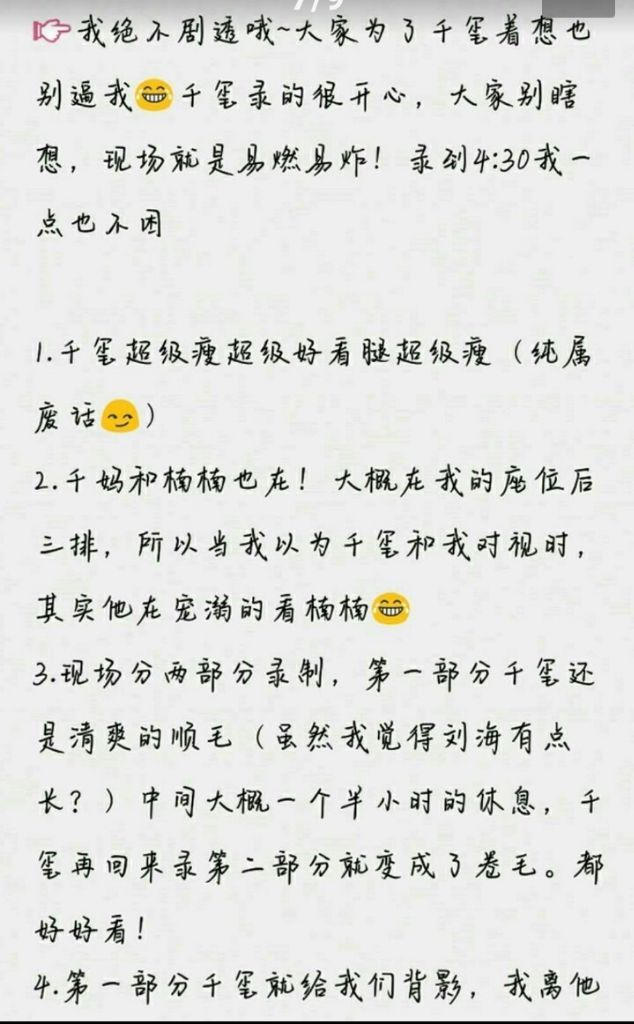 7/9
👉我绝不剧透哦~大家为了千玺着想也
别逼我😂千玺录的很开心，大家别瞎
想，现场就是易燃易炸！录到4:30我一
点也不困
1.千玺超级瘦超级好看腿超级瘦（纯属
废话😏）
2.千妈和楠楠也在！大概在我的座位后
三排，所以当我以为千玺和我对视时，
其实他在宠溺的看楠楠😂
3.现场分两部分录制，第一部分千玺还
是清爽的顺毛（虽然我觉得刘海有点
长？）中间大概一个半小时的休息，千
玺再回来录第二部分就变成了卷毛。都
好好看！
4.第一部分千玺就给我们背影，我离他